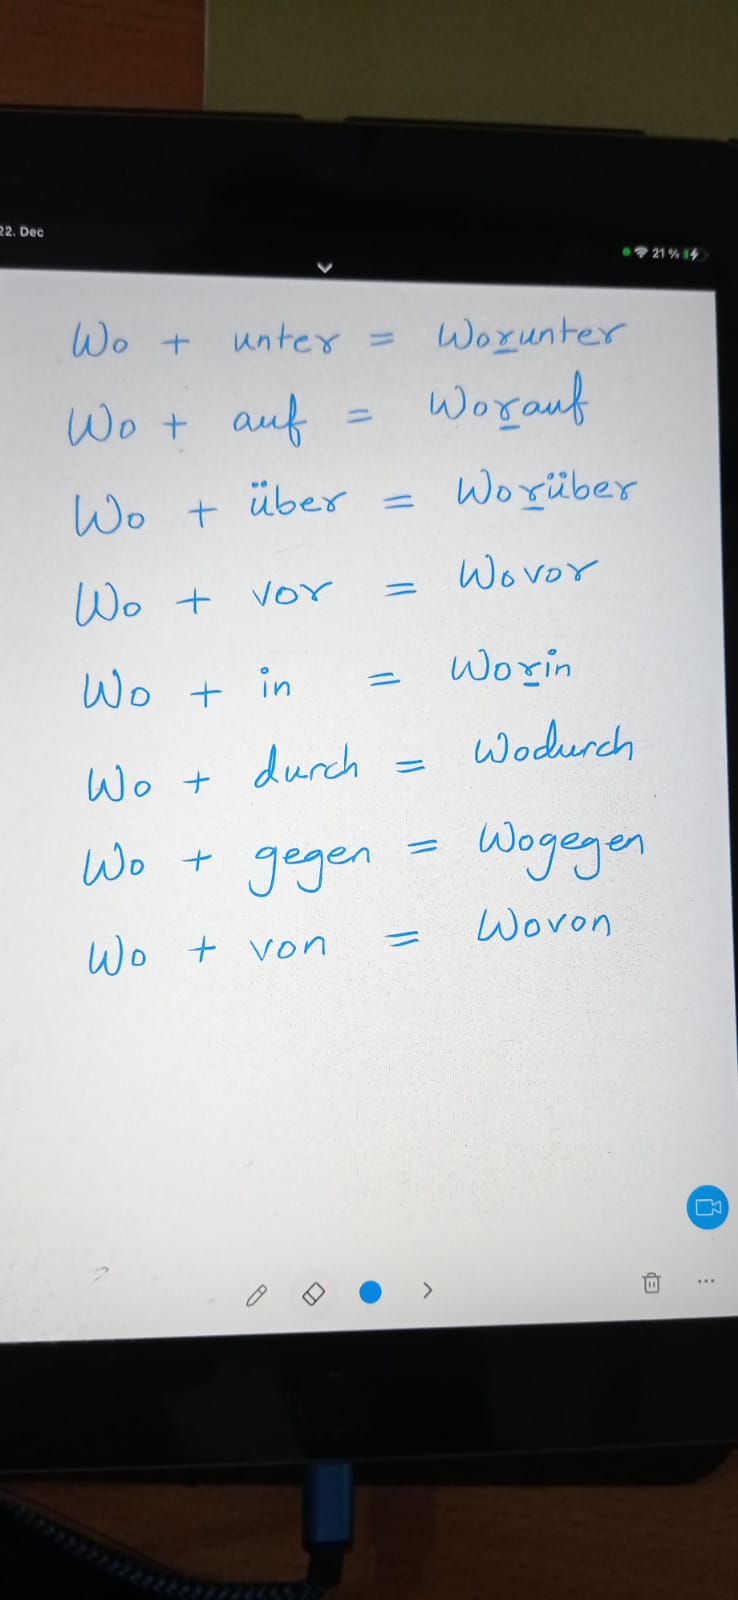 22. Dec
21 %
Wo + unter = Worunter
Wo + auf = Worauf
Wo + über = Worüber
Wo + vor = Wovor
Wo + in = Worin
Wo + durch = Wodurch
Wo + gegen = Wogegen
Wo + von = Wovon